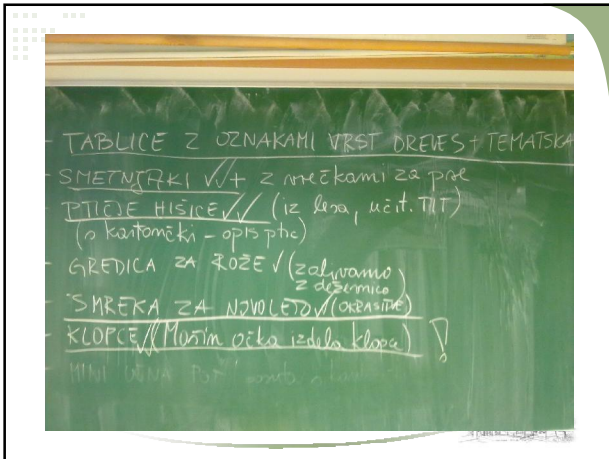 - TABLICE Z OZNAKAMI VRST DREVES + TEMATSKA
- SMETNJAKI √√+ z vrečkami za pse
- PTIČJE HIŠICE √√ (iz lesa, učit. TIT)
(s kartončki - opis ptic)
- GREDICA ZA ROŽE √ (zalivamo
z deževnico)
- SMREKA ZA NOVO LETO √ (OKRASITEV)
- KLOPCE √√ (Mašin očka izdela klopce) !
- MINI UČNA POT